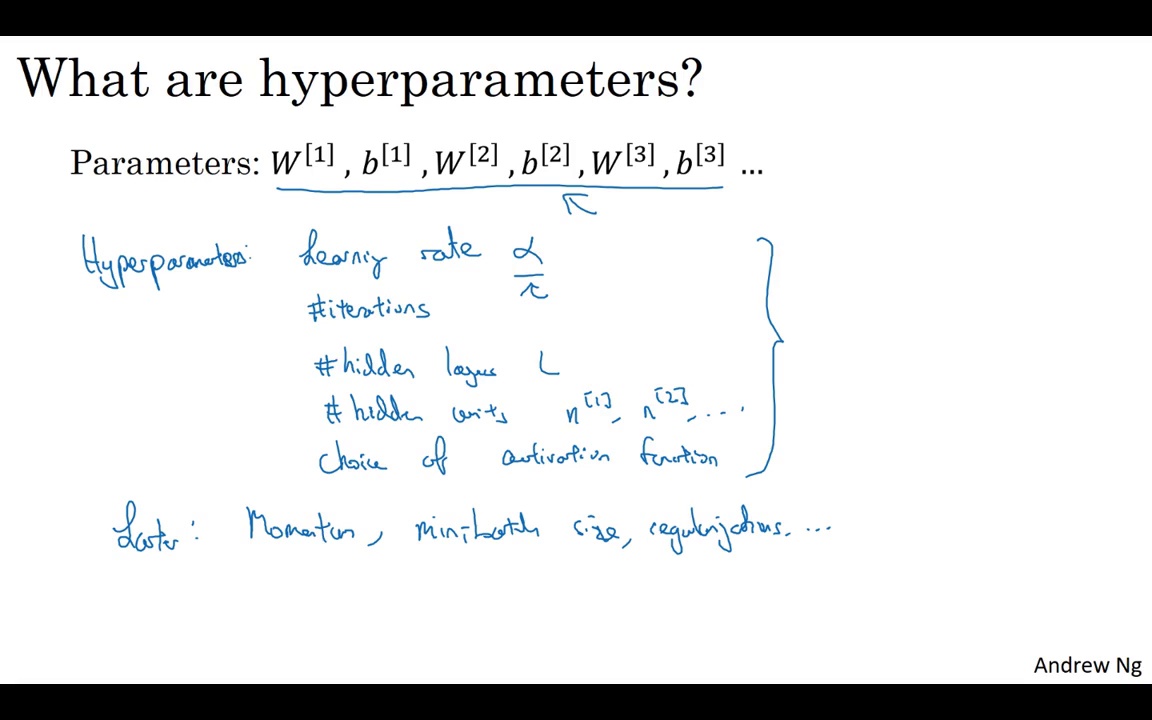 What are hyperparameters?
Parameters: W[1] , b[1] , W[2] , b[2] , W[3] , b[3] ...
Hyperparameters: Learning rate α
#iterations
#hidden layers L
#hidden units n[1], n[2], ....
Choice of activation function
Later: Momentum, mini-batch size, regularizations. ...
Andrew Ng